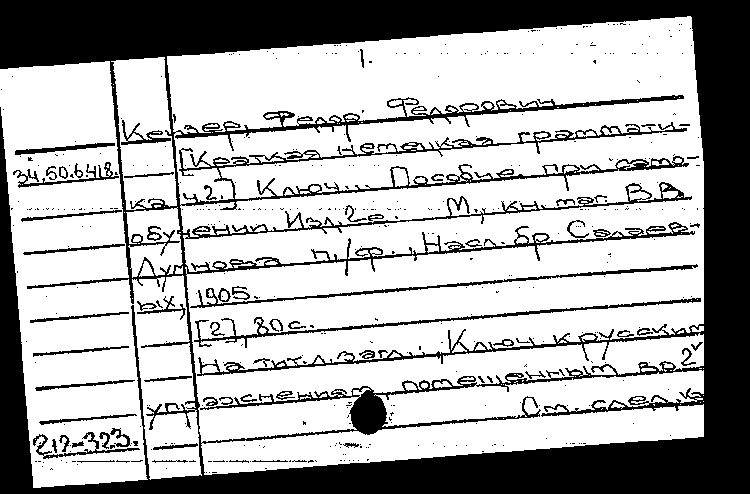 1.
Кейзер, Федор Федорович
34.50.6418. [Краткая немецкая граммати-
ка ч.2.] Ключ... Пособие при само-
обучении. Изд. 2е. М., кн. маг. В.В.
Думнова п/ф., Насл. бр. Салаев-
ых, 1905.
[2], 80 с.
На тит. л. загл.: „Ключ к русским
упражнениям, помещенным во 2
212-323. См. след. к